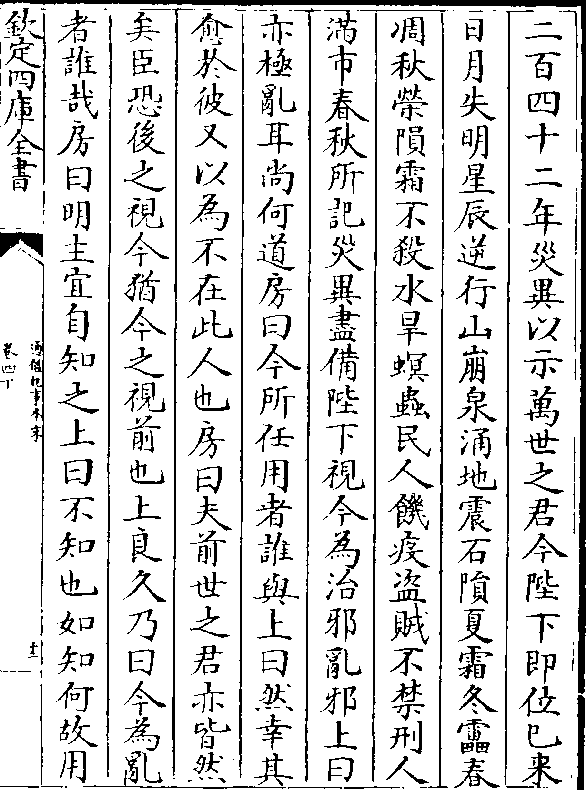 二百四十二年災異以示萬世之君今陛下即位已来
日月失明星辰逆行山崩泉涌地震石隕夏霜冬靁春
凋秋榮隕霜不殺水旱螟蟲民人饑疫盗賊不禁刑人
滿市春秋所記災異盡備陛下視今為治邪亂邪上曰
亦極亂耳尚何道房曰今所任用者誰與上曰然幸其
愈於彼又以為不在此人也房曰夫前世之君亦皆然
矣臣恐後之視今猶今之視前也上良久乃曰今為亂
者誰哉房曰明主宜自知之上曰不知也如知何故用
欽定四庫全書
通鑑紀事本末
卷四下
十二